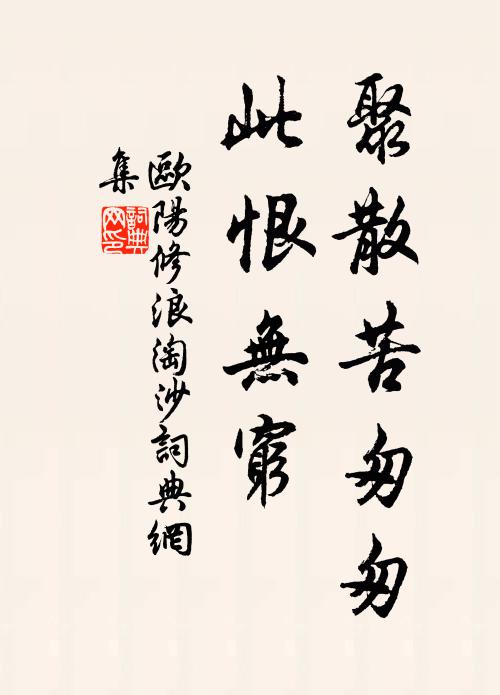 聚散苦匆匆
此恨無窮
歐陽修浪淘沙詞典網
集
詞典网印